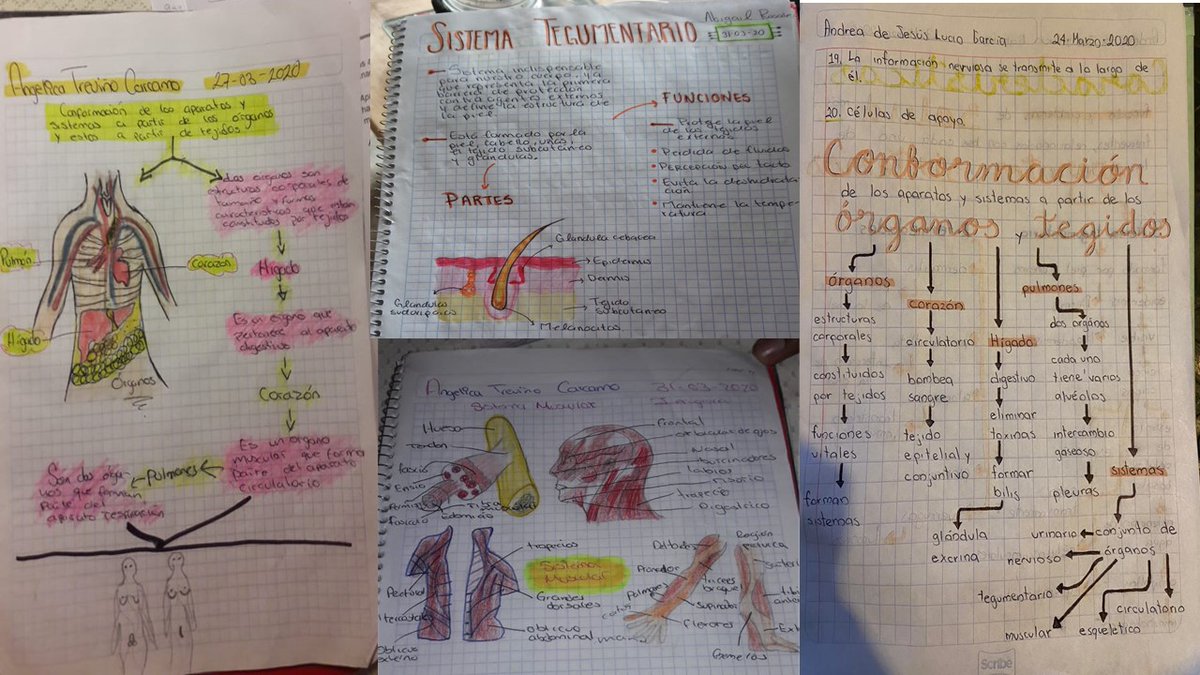 Angelica Treviño Carcamo 27-03-2020
Conformación de los aparatos y
sistemas a partir de los órganos
y estos a partir de tejidos
Los órganos son
estructuras corporales de
tamaño y
características que estan
constituidos por tejidos
Pulmón
Corazón
Hígado
Órganos
Hígado
Es un órgano que
pertenece al aparato
digestivo
Corazón
Es un organo
muscular que forma
parte del aparato
circulatorio
Pulmones
Son dos órga
nos que forman
parte del
aparato respiración
SISTEMA TEGUMENTARIO
Abigail
31-03-20
Sistema indispensable
para nuestro cuerpo, ya
que representa la primera
barrera de protección
contra agentes externos
y define la estructura de
la piel.
Está formado por la
piel, cabello, uñas,
el tejido subcutáneo
y glándulas.
PARTES
FUNCIONES
Protege la piel
de los tejidos
externos
Perdida de fluidos
Percepción del tacto
Evita la deshidrata
ción
Mantiene la tempe
ratura
Glandula cebacea
Epidermis
Dermis
Tejido
subcutáneo
Melanocitos
Glandulas
sudoriparas
Angelica Treviño Carcamo 31-03-2020
Sistema Muscular
Hueso
Tendon
fascia
Frontal
orbicular de ojos
Nasal
buccinadores
labios
trapecio
Digastrico
trapecios
Pectoral
Grandes
dorsales
oblicuo
abdominal
Oblicuo
externo
Sistema
Muscular
Deltoides
Pronador
triceps
Supinador
Flexores
Gemelos
Andrea de Jesús Lucio García 24-Marzo-2020
19. La información nerviosa se transmite a lo largo de
él.
20. Células de apoyo
Conformación
de los aparatos y sistemas a partir de los
órganos y tegidos
órganos
estructuras
corporales
constituidos
por tejidos
funciones
vitales
forman
sistemas
corazón
circulatorio
bombea
sangre
tejido
epitelial y
conjuntivo
Hígado
digestivo
eliminar
toxinas
formar
bilis
glándula
excrina
pulmones
dos orgános
cada uno
tiene varios
alvéolos
intercambio
gaseoso
pleuras
sistemas
conjunto de
órganos
urinario
nervioso
tegumentario
muscular
esquelético
circulatorio
Scribe